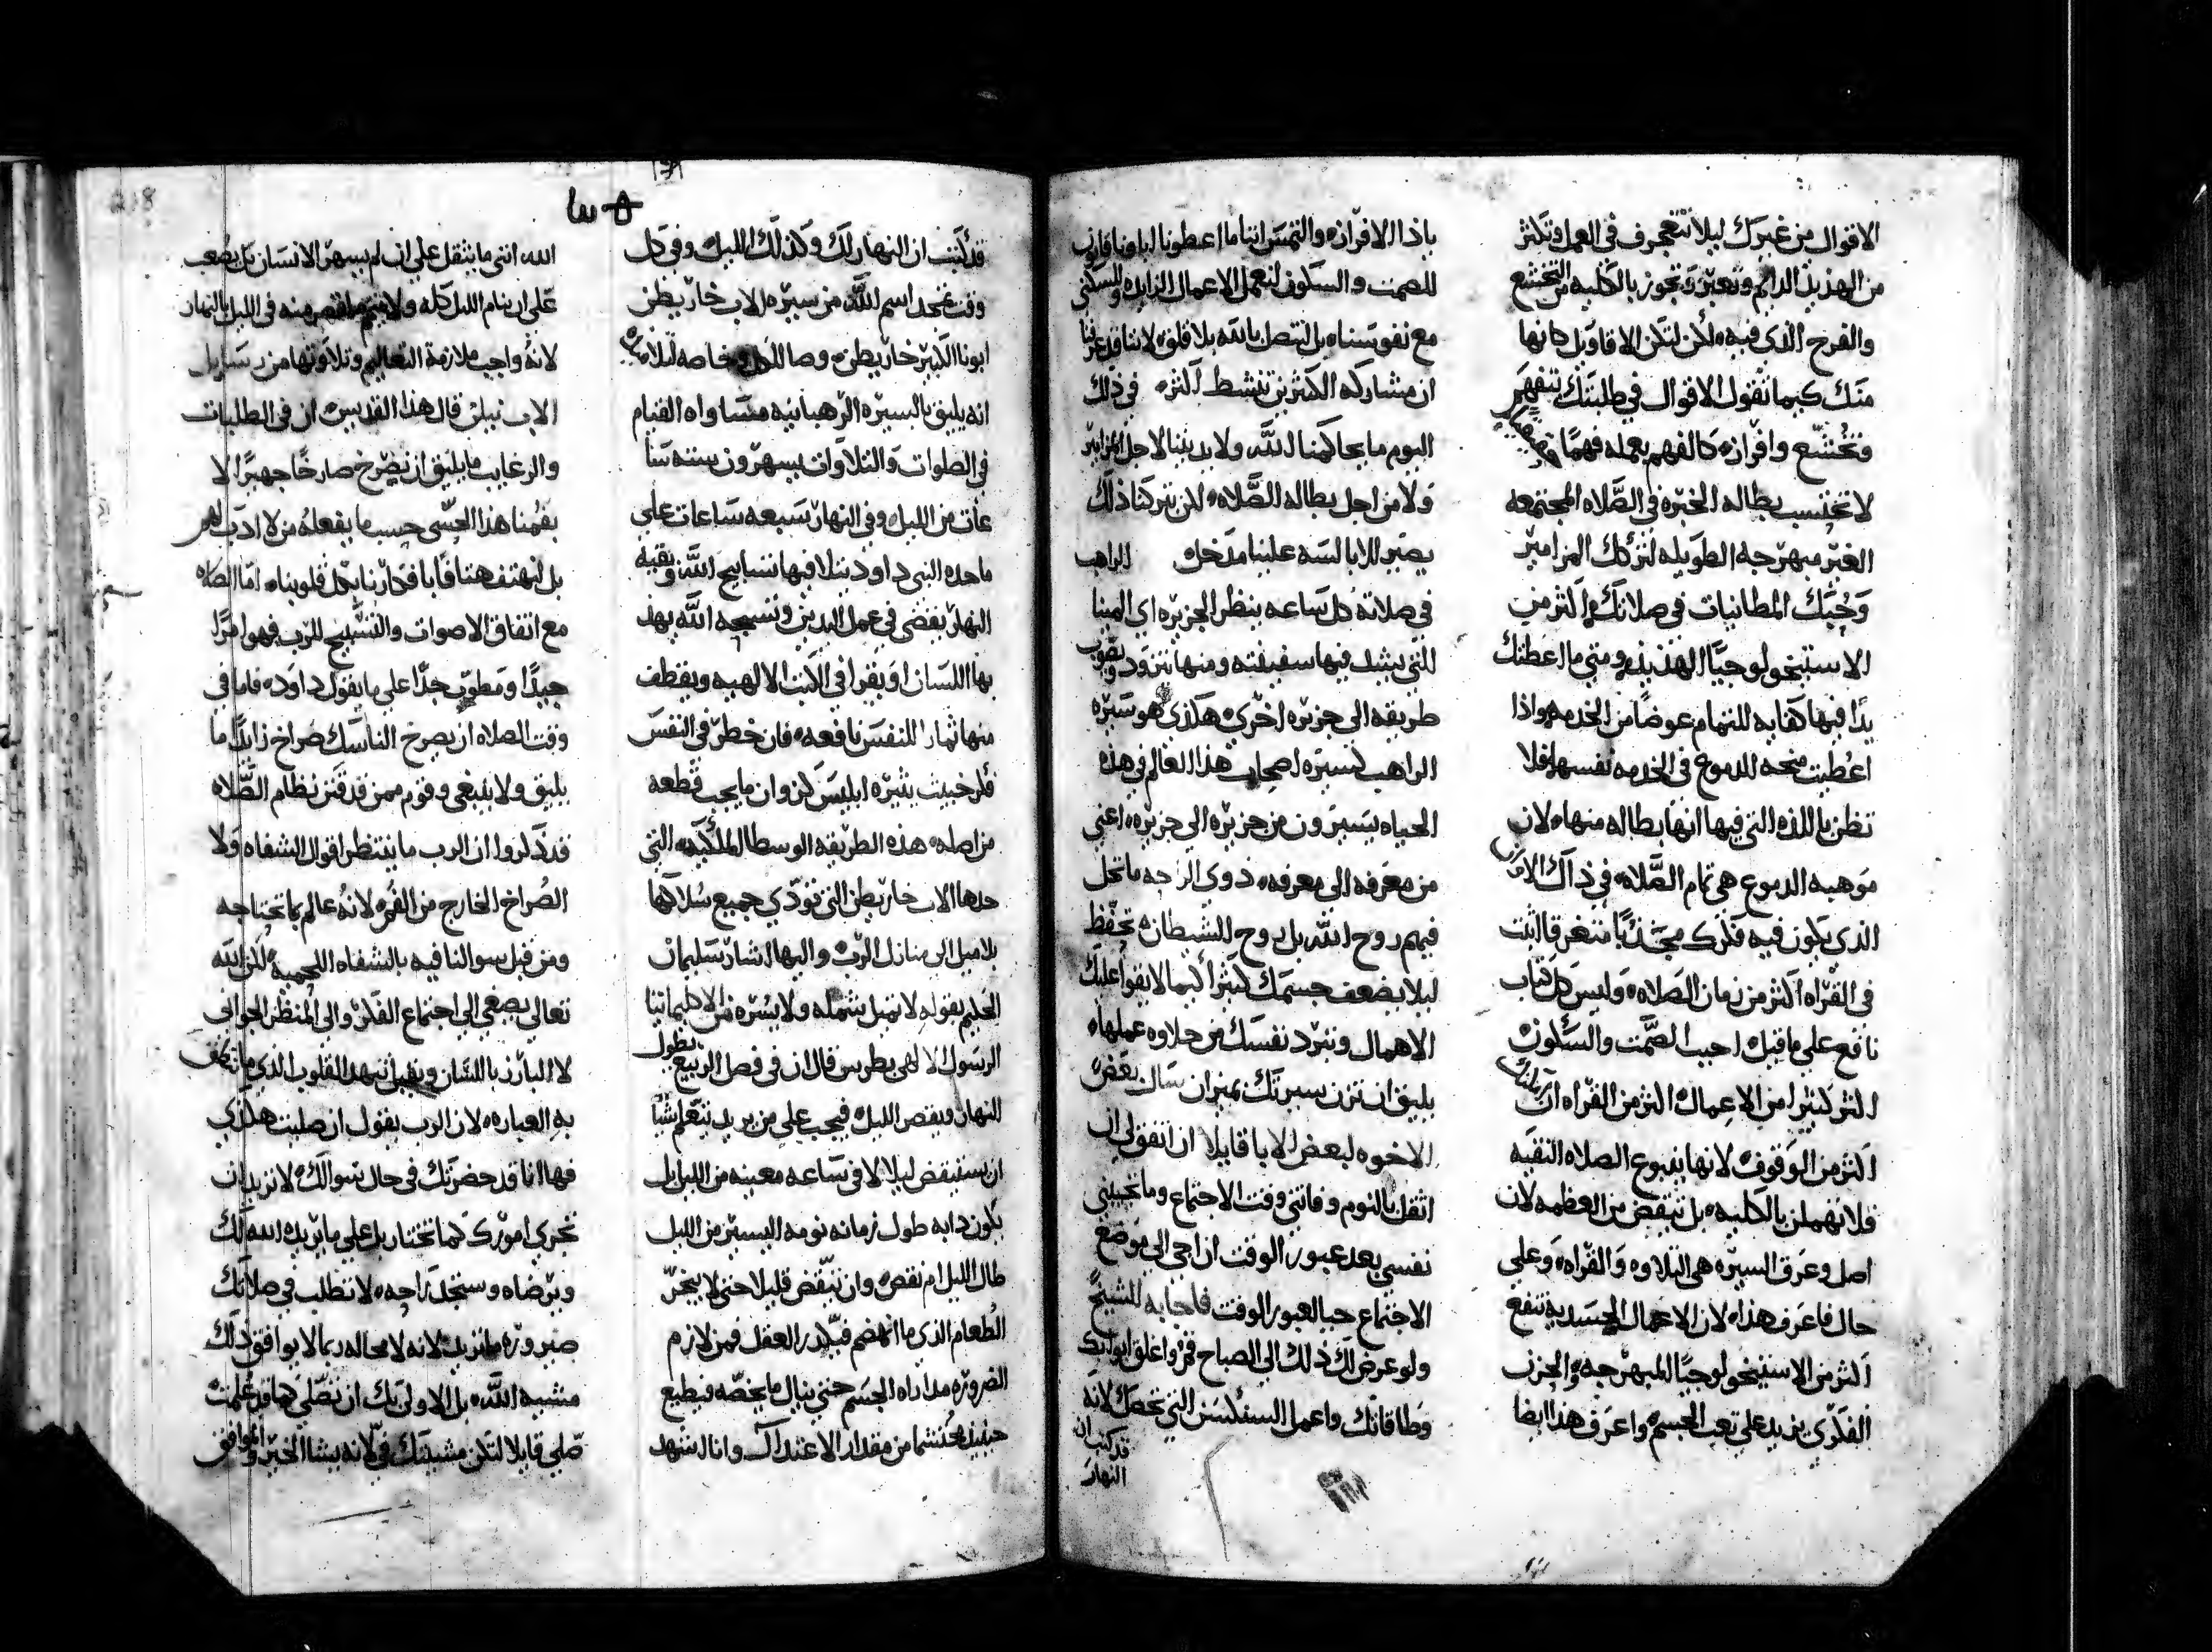 الاقوال من غيرك ليلا تتعجرف في العمل وتكثر
من الهذيذ الدايم وتعبر وتجوز بالكليه من التخشع
والفرح الذي فيه، لكن لتكن الاقاويل كانها
منك كيما تقول الاقوال في طلبتك بتفهم
وتخشع وافراز، كالفهم بعمله فهمًا
لا تحتسب بطاله الخبره في الصَّلاه المجتمعه
الغير مبهرجه الطويله لتركك المزامير
وَحُبَّك المطانيات في صلاتك اكثر من
الاستيخولوجيَّا الهذيذ، ومتي ما اعطتك
يدًا فيها كفايه للتمام عوضًا من الخدمه واذا
اعُطيت منحه الدموع في الخدمه نفسها فلا
تظن باللذه التي فيها انها بطاله منها، لان
موهبه الدموع هي تمام الصَّلاه، في ذاك الامر
الذي يكون فيه فكرك منجذبًا متغرقا اثبت
في القراه اكثر من زمان الصَلاه، وليس كل كتاب
نافع علي ما قيل، احبب الصَّمت والسكون
اكثر كثيرا من الاعمال، اكثر من القراه ان
اكثر من الوقوف، لانها ينبوع الصلاه النقيه
فلا تهملن بالكليه، بل تيقض من العظمه لان
اصل وعرق السيره هي التلاوه والقراه، وعلي
حال فاعرف هذا، لان الاعمال الجسديه تنفع
اكثر من الاستيخولوجيَّا المبهرجه، والحزن
الفكري يزيد علي تعب الجسم، واعرف هذا ايضا
باذا الافراز، والتمس اننا ما اعطونا اباونا قانون
للصمت والسكون لنعمل الاعمال الزايده
مع نفوسنا، بل لنتصل بالله بلا قلق لاننا قد عرفنا
ان مشاركه الكثيرين تنشط اكثر، في ذلك
اليوم ما يحاكمنا الله ولا يديننا لاجل المزامير
ولا من اجل بطاله الصَّلاه، لكن تركنا ذلك
يصير للابالسه علينا مدخل، الراهب
في صلاته كل ساعه ينظر الجزيره اي المينا
التي يثبت فيها سفينته ومنها يتزود ويقوب
طريقه الي جزيره اخري، هكذي هو سيره
الراهب كسيره اصحاب هذا العالم في هذه
الحياه يسيرون من جزيره الي جزيره، اعني
من معرفه الي معرفه، ذوي الراحه ما تحل
فيهم روح الله، بل روح الشيطان، تحفظ
ليلا يضعف جسمك كثيرًا كيما لا يقوا عليك
الاهمال وتبرد نفسك من حلاوه عملها،
يليق ان تزن سيرتك بميزان سال بعض
الاخوه لبعض الابا قايلا ان اتفق لي ان
اثقل بالنوم وفاتني وقت الاجتماع وما تجيبني
نفسي بعد عبور الوقت ان اجي الي موضع
الاجتماع حيا لعبور الوقت فاجابه الشيخ
ولو عرض لك ذلك الي الصباح فقم واغلق ابوابك
وطاقاتك، واعمل السنكسس التي تخصك لانه
قد كتب ان
النهار
قد كتب ان النهار لك وكذلك الليل، وفي كل
وقت نمجد اسم الله، من سيره الاب خاريطن
ابونا الكبير خاريطن، وصا الكل وخاصه ليلا
انه يليق بالسيره الرهبانيه مساواه القيام
في الصلوات والتلاوات يسهرون سته سا
عات من الليل، وفي النهار سبعه ساعات علي
ما حده النبي داود يتلا فيها تسابيح الله، وبقيه
النهار يقضي في عمل اليدين وتسبيحه الله بهذ
بها اللسان او يقرا في الكتب الالهيه ويقطف
منها ثمارًا للنفس نافعه، فان خطر في النفس
فكر خبيث يثيره ابليس كزوان ما يجب قطعه
من اصله، هذه الطريقه الوسطا الملكيه، التي
حدها الاب خاريطن التي تودي جميع سلاكها
بلا ميل الي منازل الرب، واليها اشار سليمان
الحكيم بقوله لا تميل يمنه ولا يسره
الرسول الالهي بطرس قال ان في فصل الربيع يطول
النهار ويقصر الليل، فيجب علي من يريد يتعلم شيًّا
ان يستيقض ليلا لا في ساعه معينه من الليل بل
يكون دابه طول زمانه نومه اليسير من الليل
طال الليل ام نقص، وان تيقض قليلا حتي لا يبخر
الطعام الذي ما انهضم فيكدر العقل فمن لازم
الضروره مداراه الجسم حتي ينال ما يخصه فيطيع
حينيذ محتشما من مقدار الاعتدال، وانا اشهد
الله انني ما يثقل علي ان لم يسهر الانسان بل يصعب
علي ان ينام الليل كله ولا يتمم ما نقص منه في الليل بالنهار
لانهُ واجب ملازمة التعاليم وتلاوتها من رسايل
الاب نيلن، قال هذا القديس، ان في الطلبات
والرغايب ما يليق ان يصرخ صارخًا جهيرًا، لا
بفمنا هذا العشي حسب ما يفعله من لا ادب لهم
بل لنهتف هتافًا بافكارنا بكل قلوبنا، امّا الصلاه
مع اتفاق الاصوات والتسبيح للرب فهوا مرًا
جيدًا ومطوب جدًّا علي ما يقول داود، فاما في
وقت الصلاه ان يصرخ الناسك صَراخ زايدًا ما
يليق ولا ينبغي وقوم ممن قد قنن نظام الصَّلاه
قد ذكروا ان الرب ما ينتظر اقوال الشفاه ولا
الصُراخ الخارج من الفم، لانهُ عالم بما تحتاجه
ومن قبل سوالنا فيه بالشفاه اللحميه، لكن الله
تعالي يصغي الي اجتماع الفكر والي المنظر الجواني
لا البارز باللسان ويقبل تنهد القلوب الذي ما تكلف
به العباره، لان الرب يقول ان صليت هكذي
فها انا قد حضرتك في حال سوالك، لا تريد ان
تجري امورك كما تختار بل علي ما يريده الله لك
ويرضاه وستجد راحه، لا تطلب في صلاتك
صيروره ما تريد، لانه لا محاله ربما لا يوافق ذلك
مشييه الله، بل الاولي بك ان تصَلي كما قد علمت
صلي قايلا لتكن مشيتك في، لانه يشا الخير والموافق